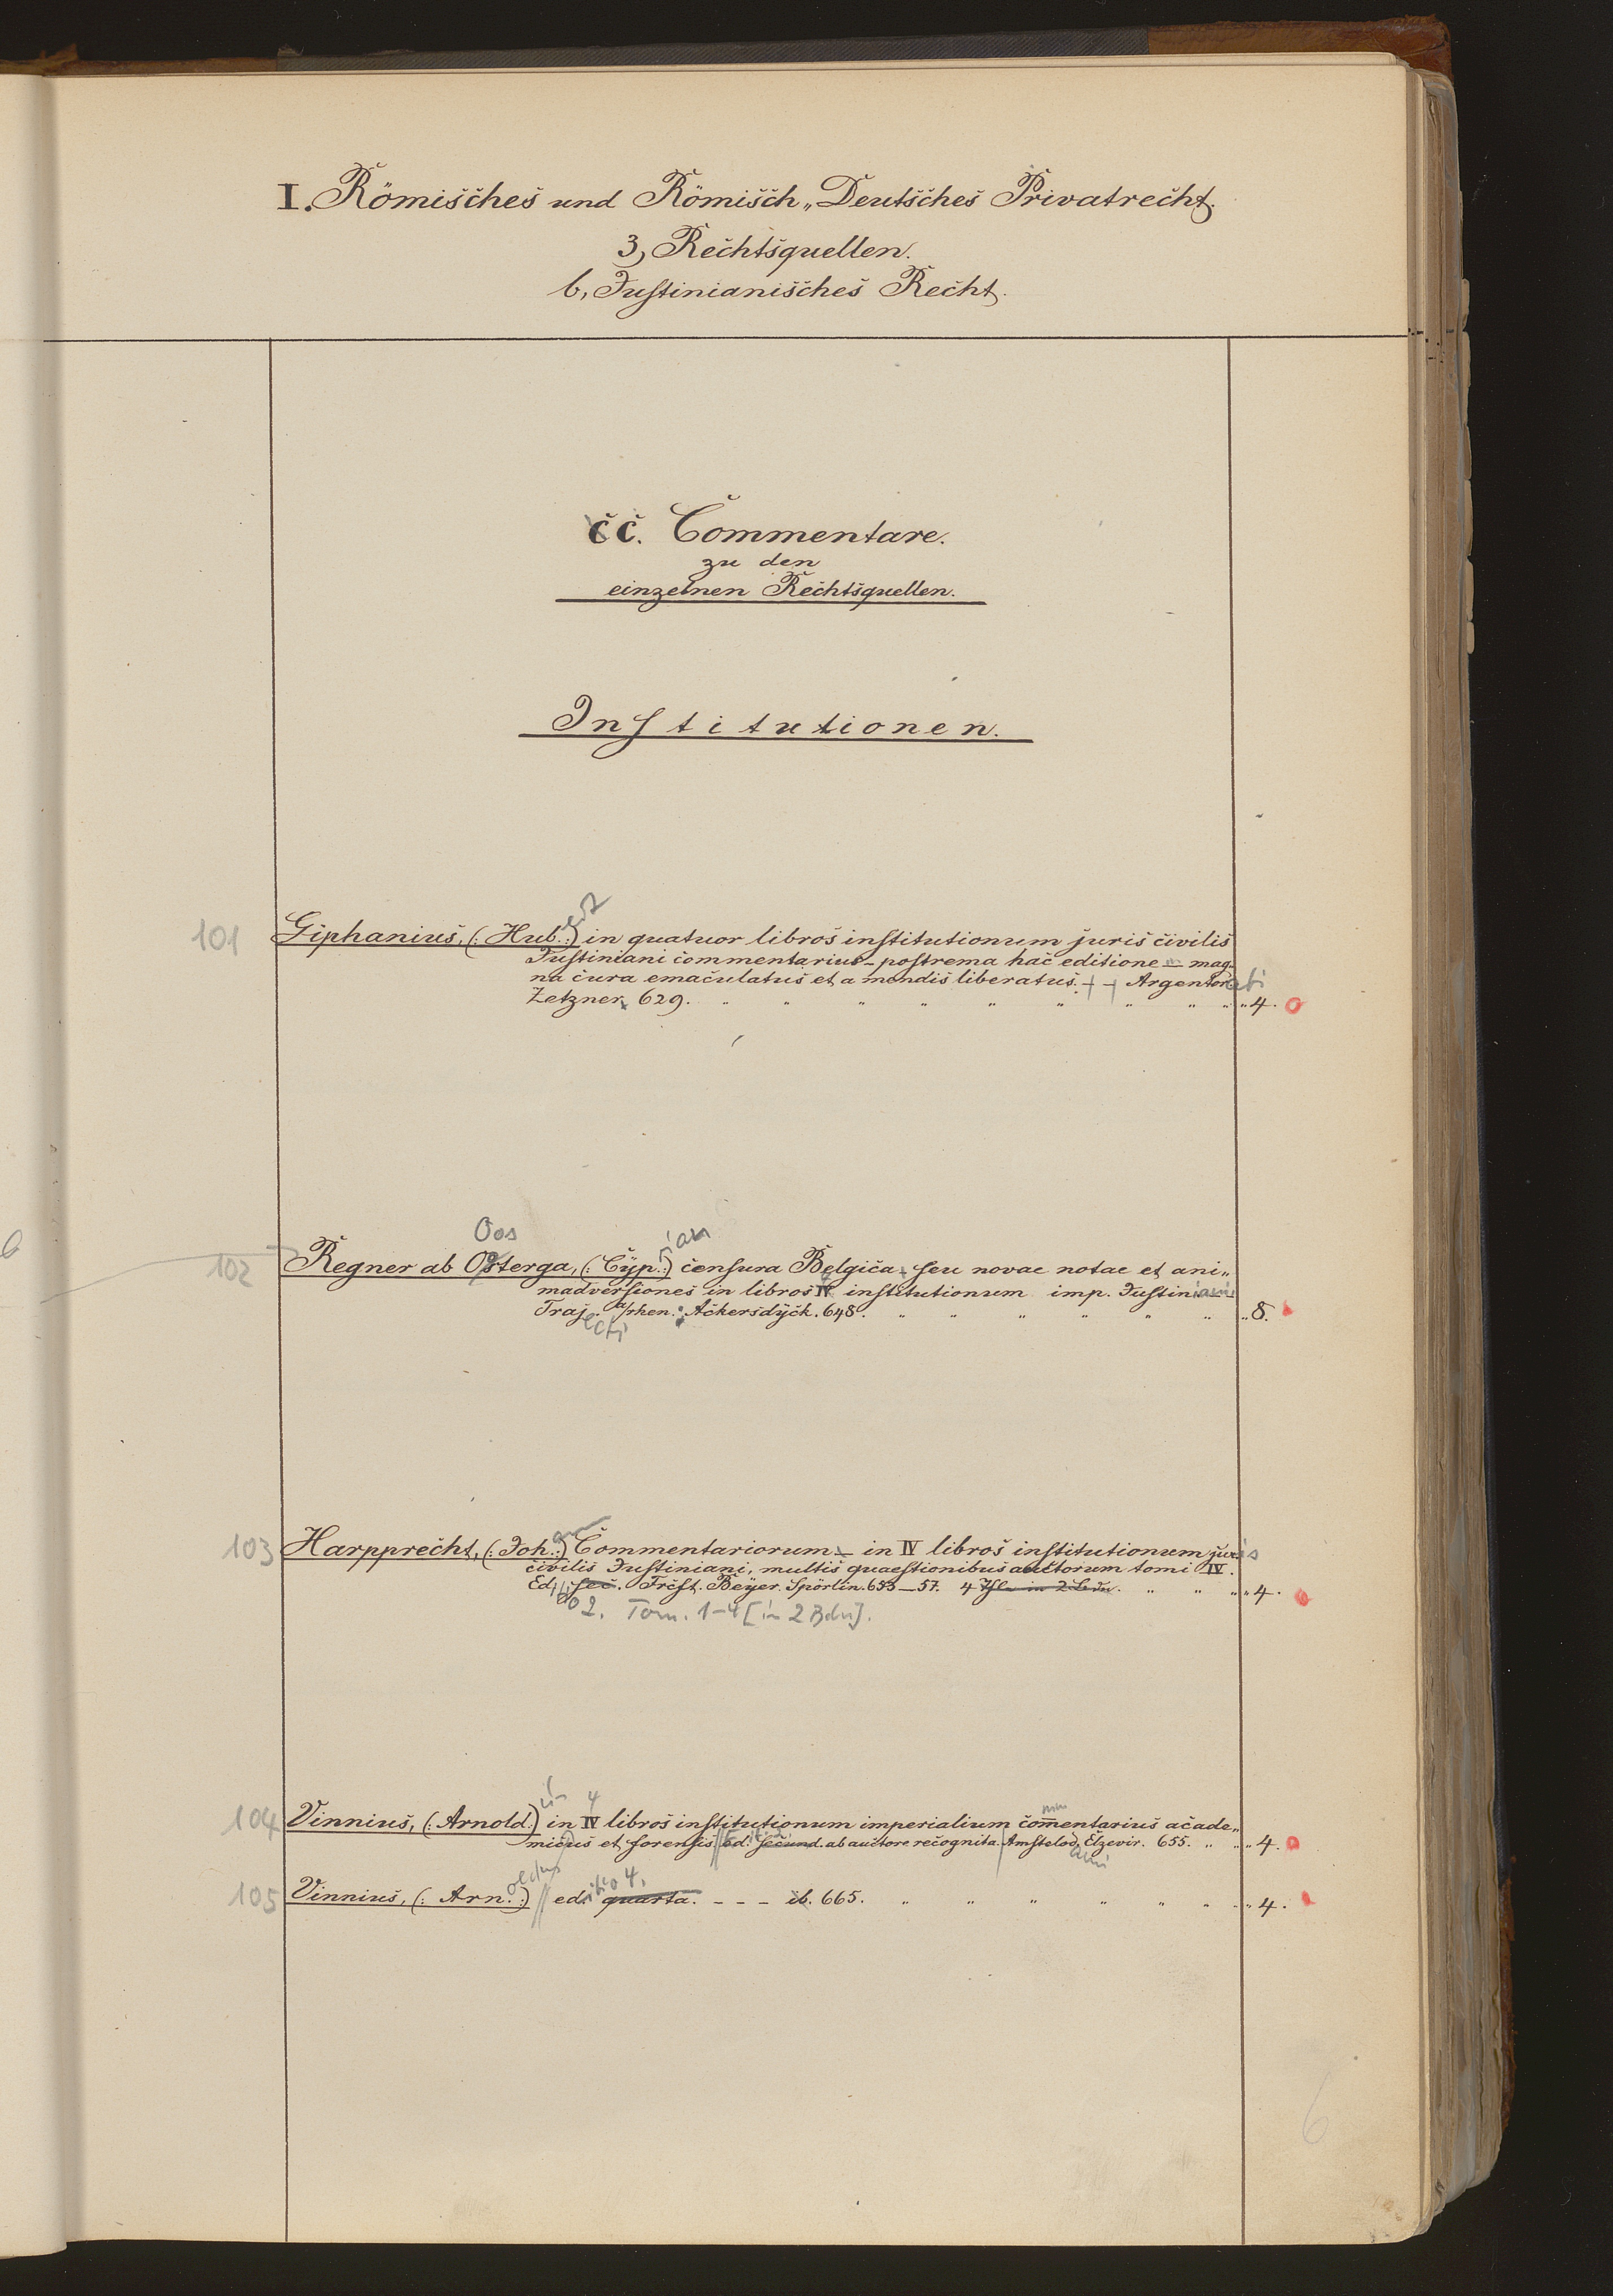 I. Römisches und Römisch„Deutsches Privatrecht.
3, Rechtsquellen.
b, Justinianisches Recht.
cc. Commentare.
zu den
einzelnen Rechtsquellen.
Institutionen.
101 Giphanius, (: Hub.:) ert in quatuor libros institutionum juris civilis
Justiniani commentarius – postrema hac editione — mag„
na cura emaculatus et a mendis liberatus. – – Argentorati
Zetzner. 629. " " " " " " " " " 4.
Oos ian
102 Regner ab Osterga, (: Cÿp.:) censura Belgica, seu novae notae et ani„
madversiones in libros IV institutionum imp. Justiniani
Traj. a/rhen.: Ackersdÿck. 648. " " " " " " " 8.
ecti
103 Harpprecht, (: Joh.:) ann Commentariorum – in IV libros institutionum juris
civilis Justiniani, multis quaestionibus auctorum tomi IV.
Ed. sec. Frcst. Beÿer. Spörlin. 653–57. 4 Thle in 2 Bdn. " " " 4.
io 2. Tom. 1–4 [in 2 Bdn].
104 Vinnius, (: Arnold:) in 4 IV libros institutionum imperialium commentarius acade„
micus et forensis ed. secund. ab auctore recognita. Amstelod. Elzevir. 655. " " 4.
ami
105 Vinnius, (: Arn.:) oldus ed. itio 4. quarta. – – – ib. 665. " " " " " " " 4.
6